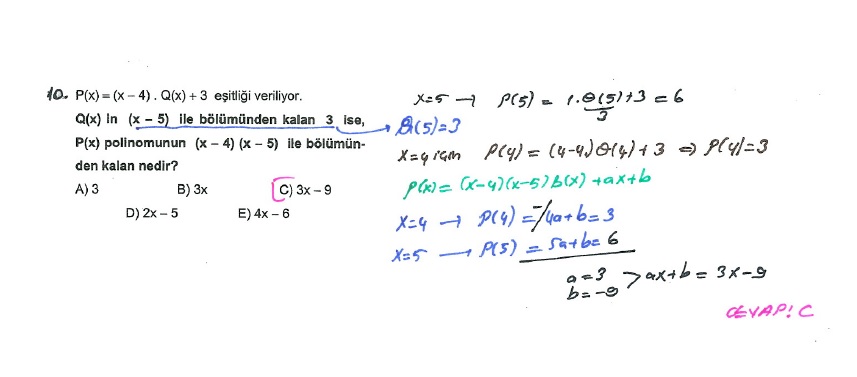 10. P(x) = (x – 4) . Q(x) + 3 eşitliği veriliyor.
Q(x) in (x – 5) ile bölümünden kalan 3 ise,
P(x) polinomunun (x – 4) (x – 5) ile bölümün-
den kalan nedir?
A) 3 B) 3x C) 3x – 9
D) 2x – 5 E) 4x – 6
x=5 → P(5) = 1.Q(5)+3 = 6
3
Q(5)=3
x=4 için P(4) = (4-4)Q(4)+3 ⇒ P(4)=3
P(x) = (x-4)(x-5)B(x)+ax+b
x=4 → P(4) = -/4a+b=3
x=5 → P(5) = 5a+b= 6
a=3 > ax+b = 3x-9
b=-9
CEVAP! C